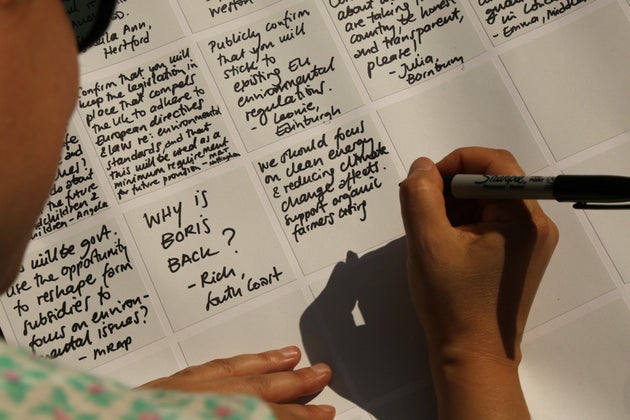 Ann,
Hertford
Publicly confirm
that you will
stick to
existing EU
environmental
regulations.
- Leonie,
Edinburgh
about
are taking
country, be honest
and transparent,
please,
- Julia,
Bornbury
- Emma,
confirm that you will
keep the legislation in
place that compels
the UK to adhere to
European directives
& laws re: environmental
standards and that
this will be used as a
minimum requirement
for future provision.
do about
the future
children &
- Angela
WHY IS
BORIS
BACK?
- Rich,
South Coast
we should focus
on clean energy
& reducing climate
change affects.
Support organic
farmers
will be govt.
use the opportunity
to reshape form
subsidies to
focus on environ-
mental issues?
- MRAP
Sharpie